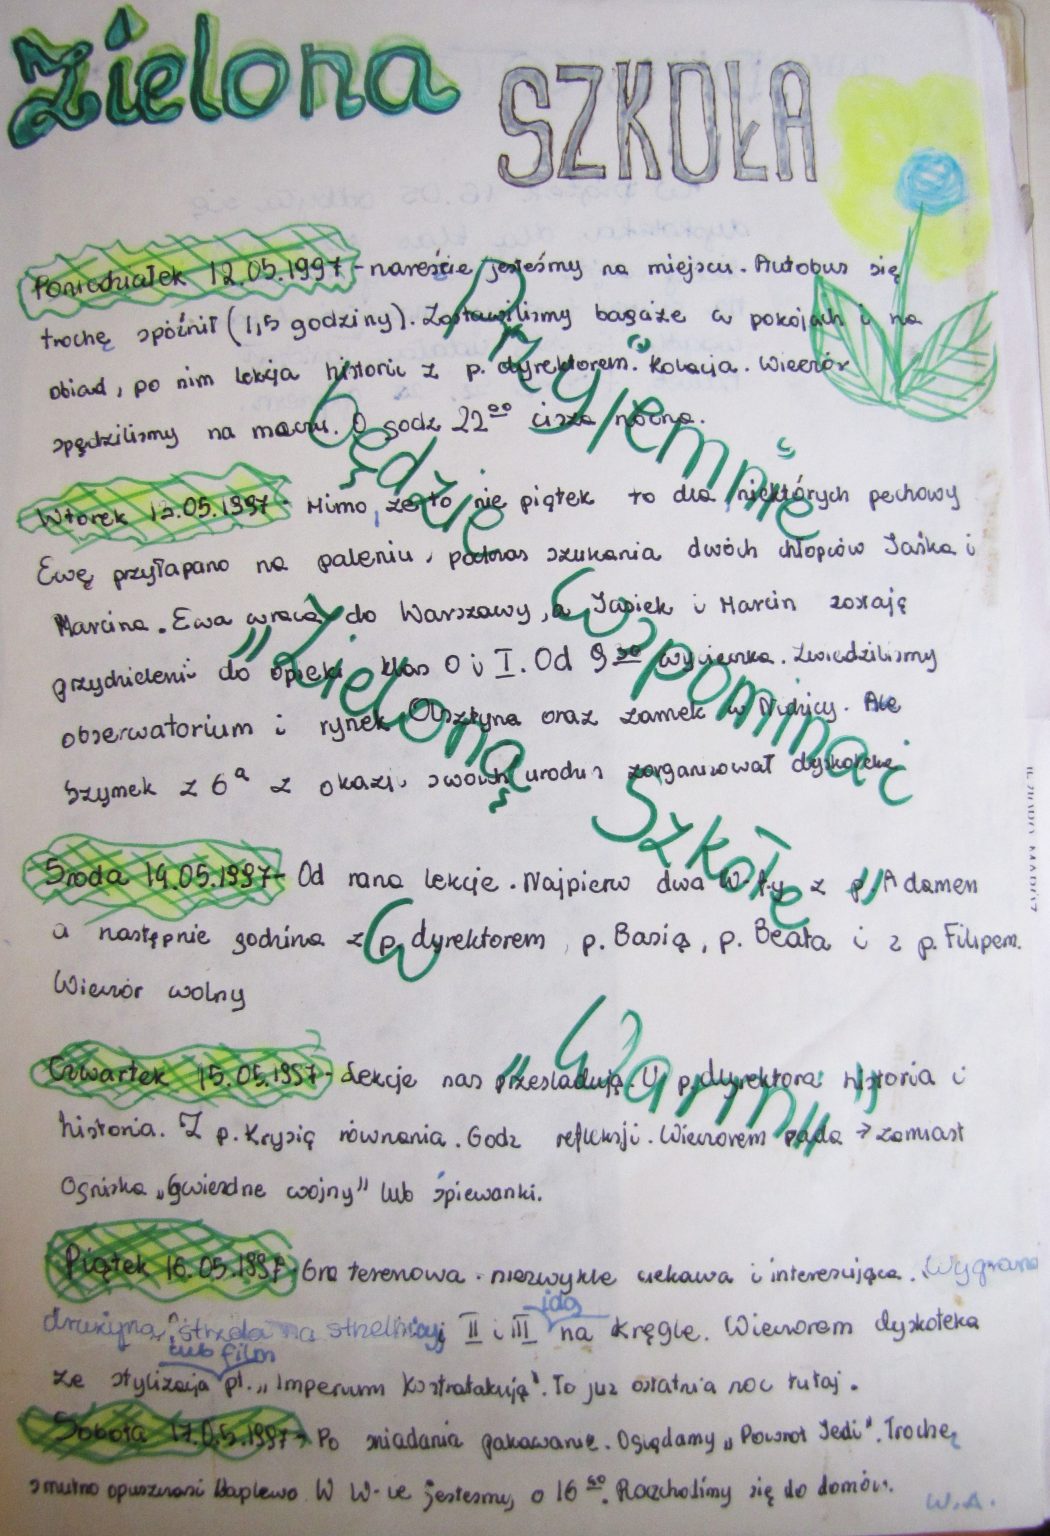 Zielona SZKOŁA
Poniedziałek 12.05.1997 - nareście jesteśmy na miejscu. Autobus się
trochę spóźnił (1,5 godziny). Zostawiliśmy bagaże w pokojach i na
obiad, po nim lekcja historii z p. dyrektorem. Kolacja. Wieczór
spędziliśmy na meczu. O godz 22°° cisza nocna.
Wtorek 13.05.1997 - Mimo, że to nie piątek to dla niektórych pechowy
Ewę przyłapano na paleniu, podczas szukania dwóch chłopców Jaśka i
Marcina. Ewa wraca do Warszawy, a Jasiek i Marcin zostają
przydzieleni do opieki klas 0 i I. Od 9³⁰ wycieczka. Zwiedziliśmy
obserwatorium i rynek Olsztyna oraz zamek w Nidzicy. Ale
Szymek z 6ª z okazji swoich urodzin zorganizował dyskotekę
Środa 14.05.1997 - Od rana lekcje. Najpierw dwa W-f-y z p. Adamem
a następnie godzina z p. dyrektorem, p. Basią, p. Beatą i z p. Filipem.
Wieczór wolny
Czwartek 15.05.1997 - Lekcje nas prześladują. U p. dyrektora historia i
historia. Z p. Krysią równania. Godz refleksji. Wieczorem pada → zamiast
Ogniska „Gwiezdne wojny" lub śpiewanki.
Piątek 16.05.1997 - Gra terenowa. niezwykle ciekawa i interesująca. Wygrana
drużyna strzela na strzelnicy II i III idą na kręgle. Wieczorem dyskoteka
ze stylizacją lub film pt. „Imperium Kontratakuje". To już ostatnia noc tutaj.
Sobota 17.05.1997 - Po śniadaniu pakowanie. Oglądamy „Powrót Jedi". Trochę
smutno opuszczać Waplewo. W W-ie jesteśmy o 16 Rozchodzimy się do domów.
W.A.
Przyjemnie
będzie
wspominać
„Zieloną
Szkołę"
w
„Warmii"